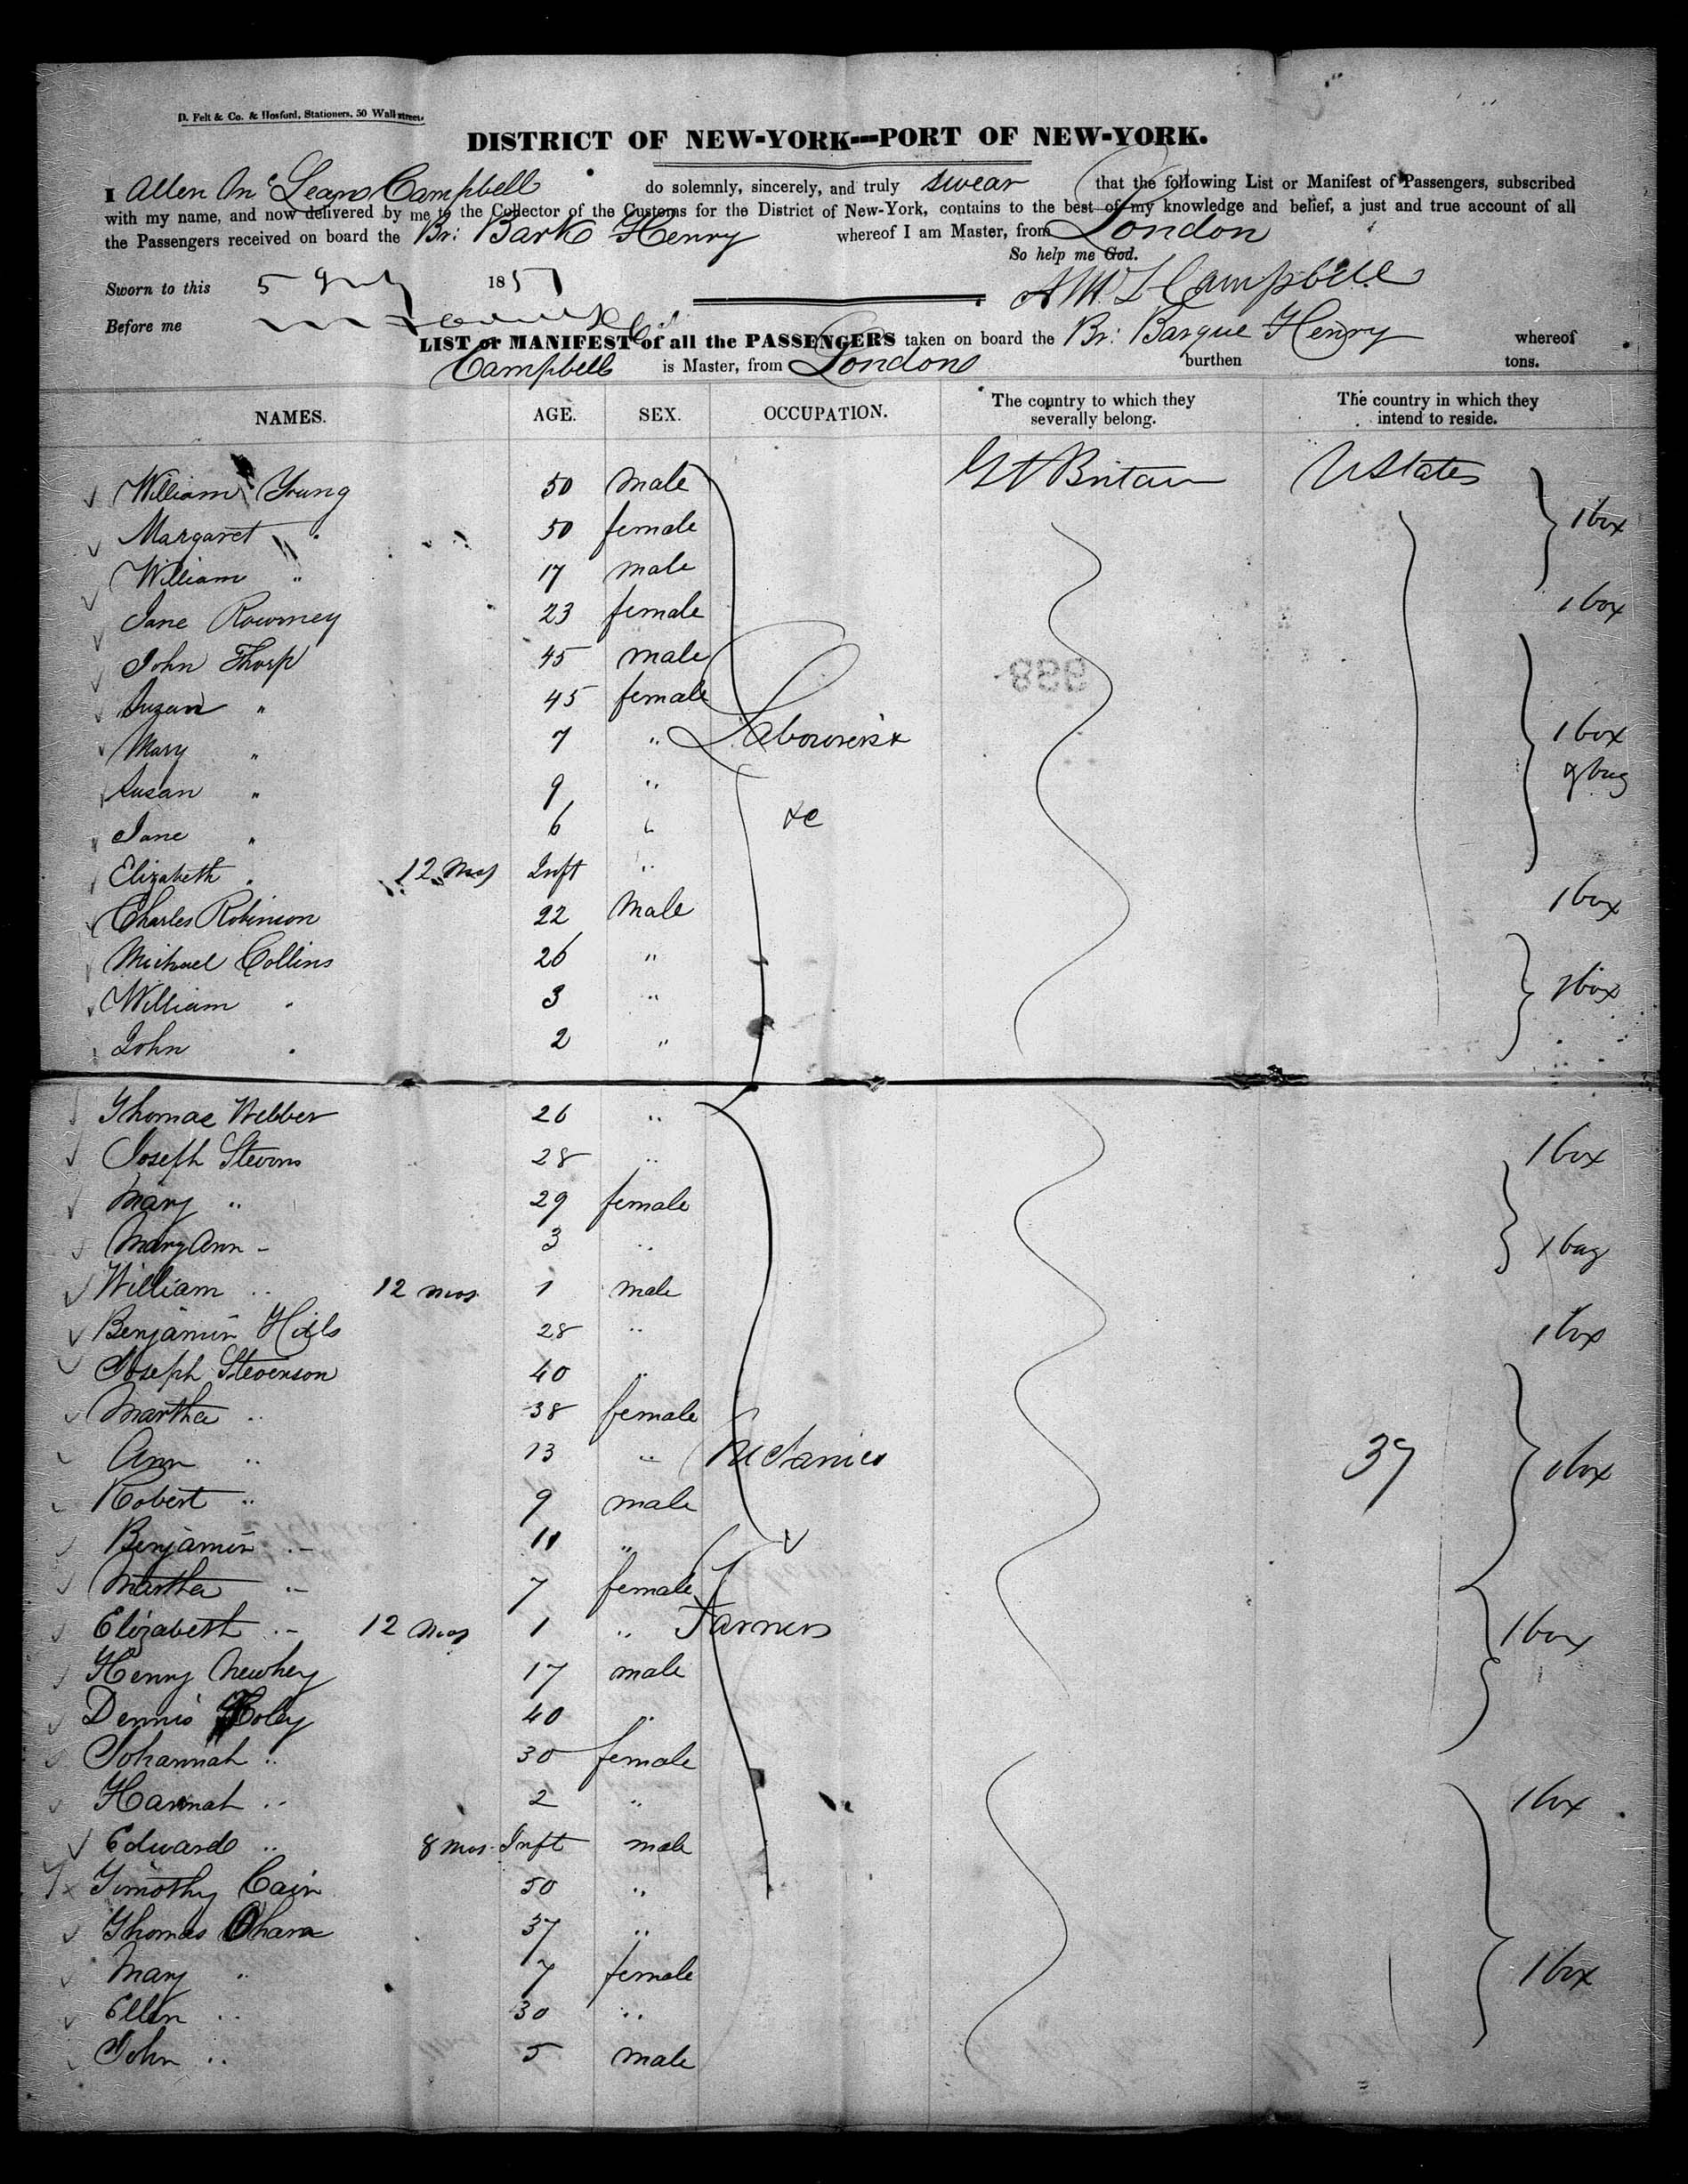 D. Felt & Co. & Hosford, Stationers, 50 Wall street.
DISTRICT OF NEW-YORK---PORT OF NEW-YORK.
I Allen Mc Leans Campbell do solemnly, sincerely, and truly swear that the following List or Manifest of Passengers, subscribed
with my name, and now delivered by me to the Collector of the Customs for the District of New-York, contains to the best of my knowledge and belief, a just and true account of all
the Passengers received on board the Br: Bark Henry whereof I am Master, from London
So help me God.
Sworn to this 5 July 1851 A McL Campbell
Before me
LIST or MANIFEST of all the PASSENGERS taken on board the Br: Barque Henry whereof
Campbell is Master, from London burthen tons.
NAMES. AGE. SEX. OCCUPATION. The country to which they severally belong. The country in which they intend to reside.
William Young 50 male Gt Britain U States
Margaret " 50 female 1 box
William " 17 male
Jane Rowney 23 female 1 box
John Thorp 45 male
Suzan " 45 female
Mary " 7 " Labourers & 1 box
Susan " 9 " & bag
Jane " 6 " &c
Elizabeth " 12 mos Inft "
Charles Robinson 22 Male 1 box
Michael Collins 26 "
William " 3 " 1 box
John " 2 "
Thomas Webber 26 "
Joseph Stevens 28 " 1 box
Mary " 29 female
Mary Ann " 3 " 1 bag
William " 12 mos 1 male
Benjamin Hills 28 " 1 box
Joseph Stevenson 40 "
Martha " 38 female
Ann " 13 " Mechanics 37 1 box
Robert " 9 male
Benjamin " 11 "
Martha " 7 female
Elizabeth " 12 mos 1 " Farmers 1 box
Henry Newhey 17 male
Dennis Foley 40 "
Johannah " 30 female
Hannah " 2 " 1 box
Edward " 8 mos Inft male
Timothy Cain 50 "
Thomas Ohara 37 "
Mary " 7 female 1 box
Ellen " 30 "
John " 5 male